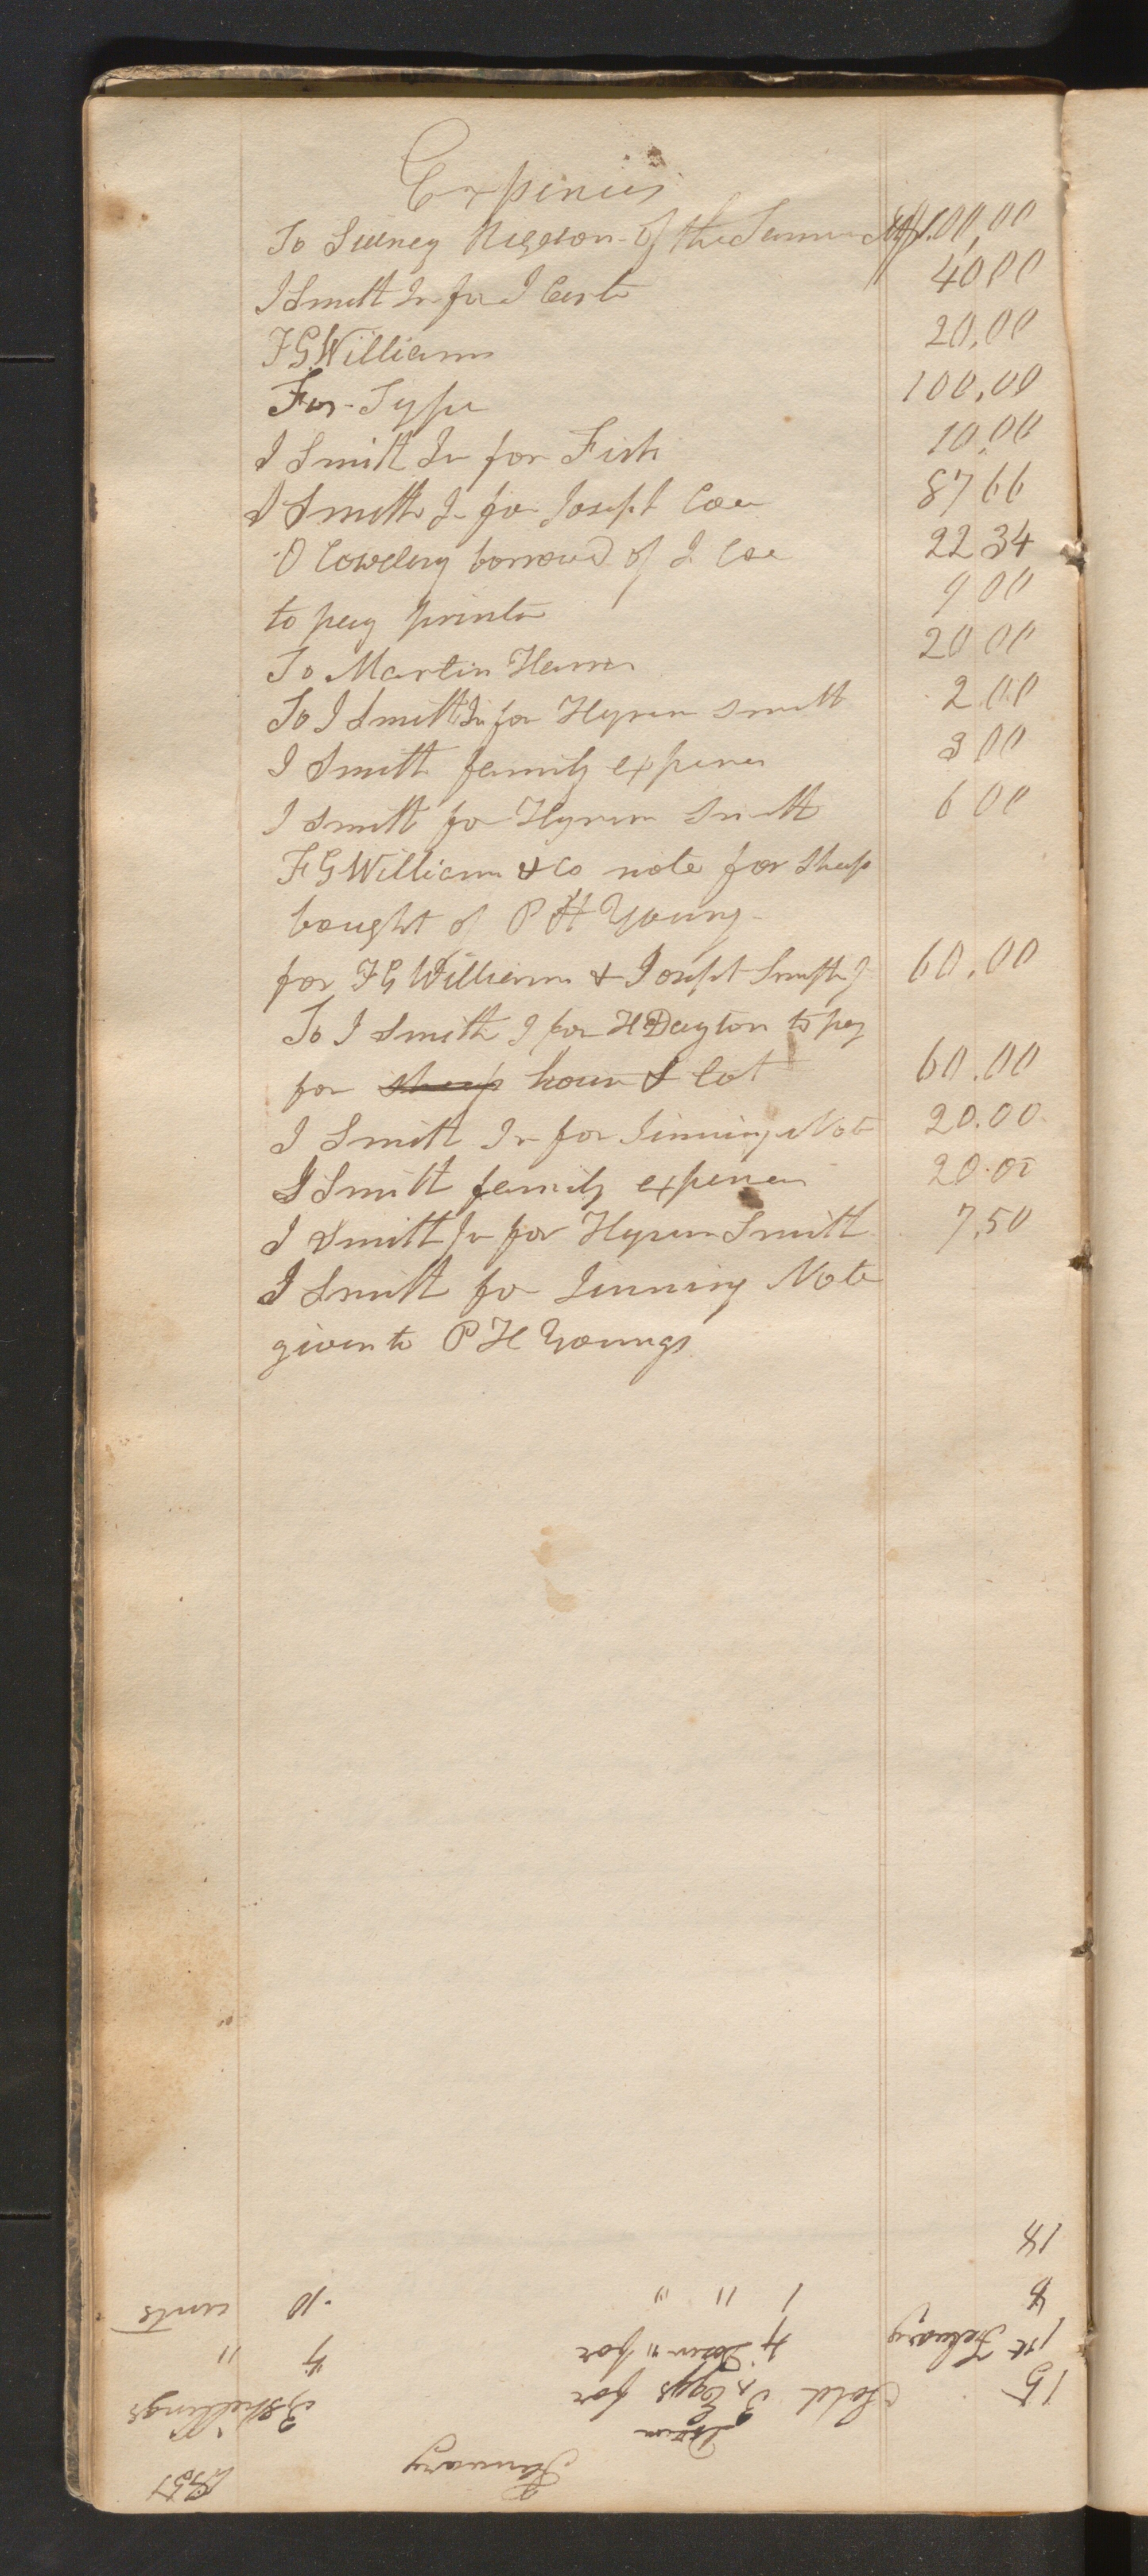 Expenies
To Sidney Rigdon - Of the 100,00
J Smith Jr for J 40,00
F G Williams 20,00
For - Type 100,00
J Smith Jr for Fish 10,00
J Smith Jr for Joseph Coe 87 66
O Cowdery borrowed of J. Coe 22 34
to pay printer 9 00
To Martin Harris 20 00
To J Smith Jr for Hyrum Smith 2 00
J Smith family expenes 3 00
J Smith for Hyrum Smith 6 00
F G Williams & Co note for Sheep
bought of P H Young -
for F G Williams & Joseph Smith J 60,00
To J Smith J for H Dayton to pay
for sheep house & lot 60.00
J Smith Jr for Jinnings Note 20.00
J Smith family expenes 20.00
J Smith Jr for Hyrum Smith 7,50
J Smith for Jinning Note
given to P H Youngs
January
Dozen
15 Sold 3 Eggs for 3 Shillings
1st Febuary 4 Dozen " for 4 "
8 1 " " 10 cents
14